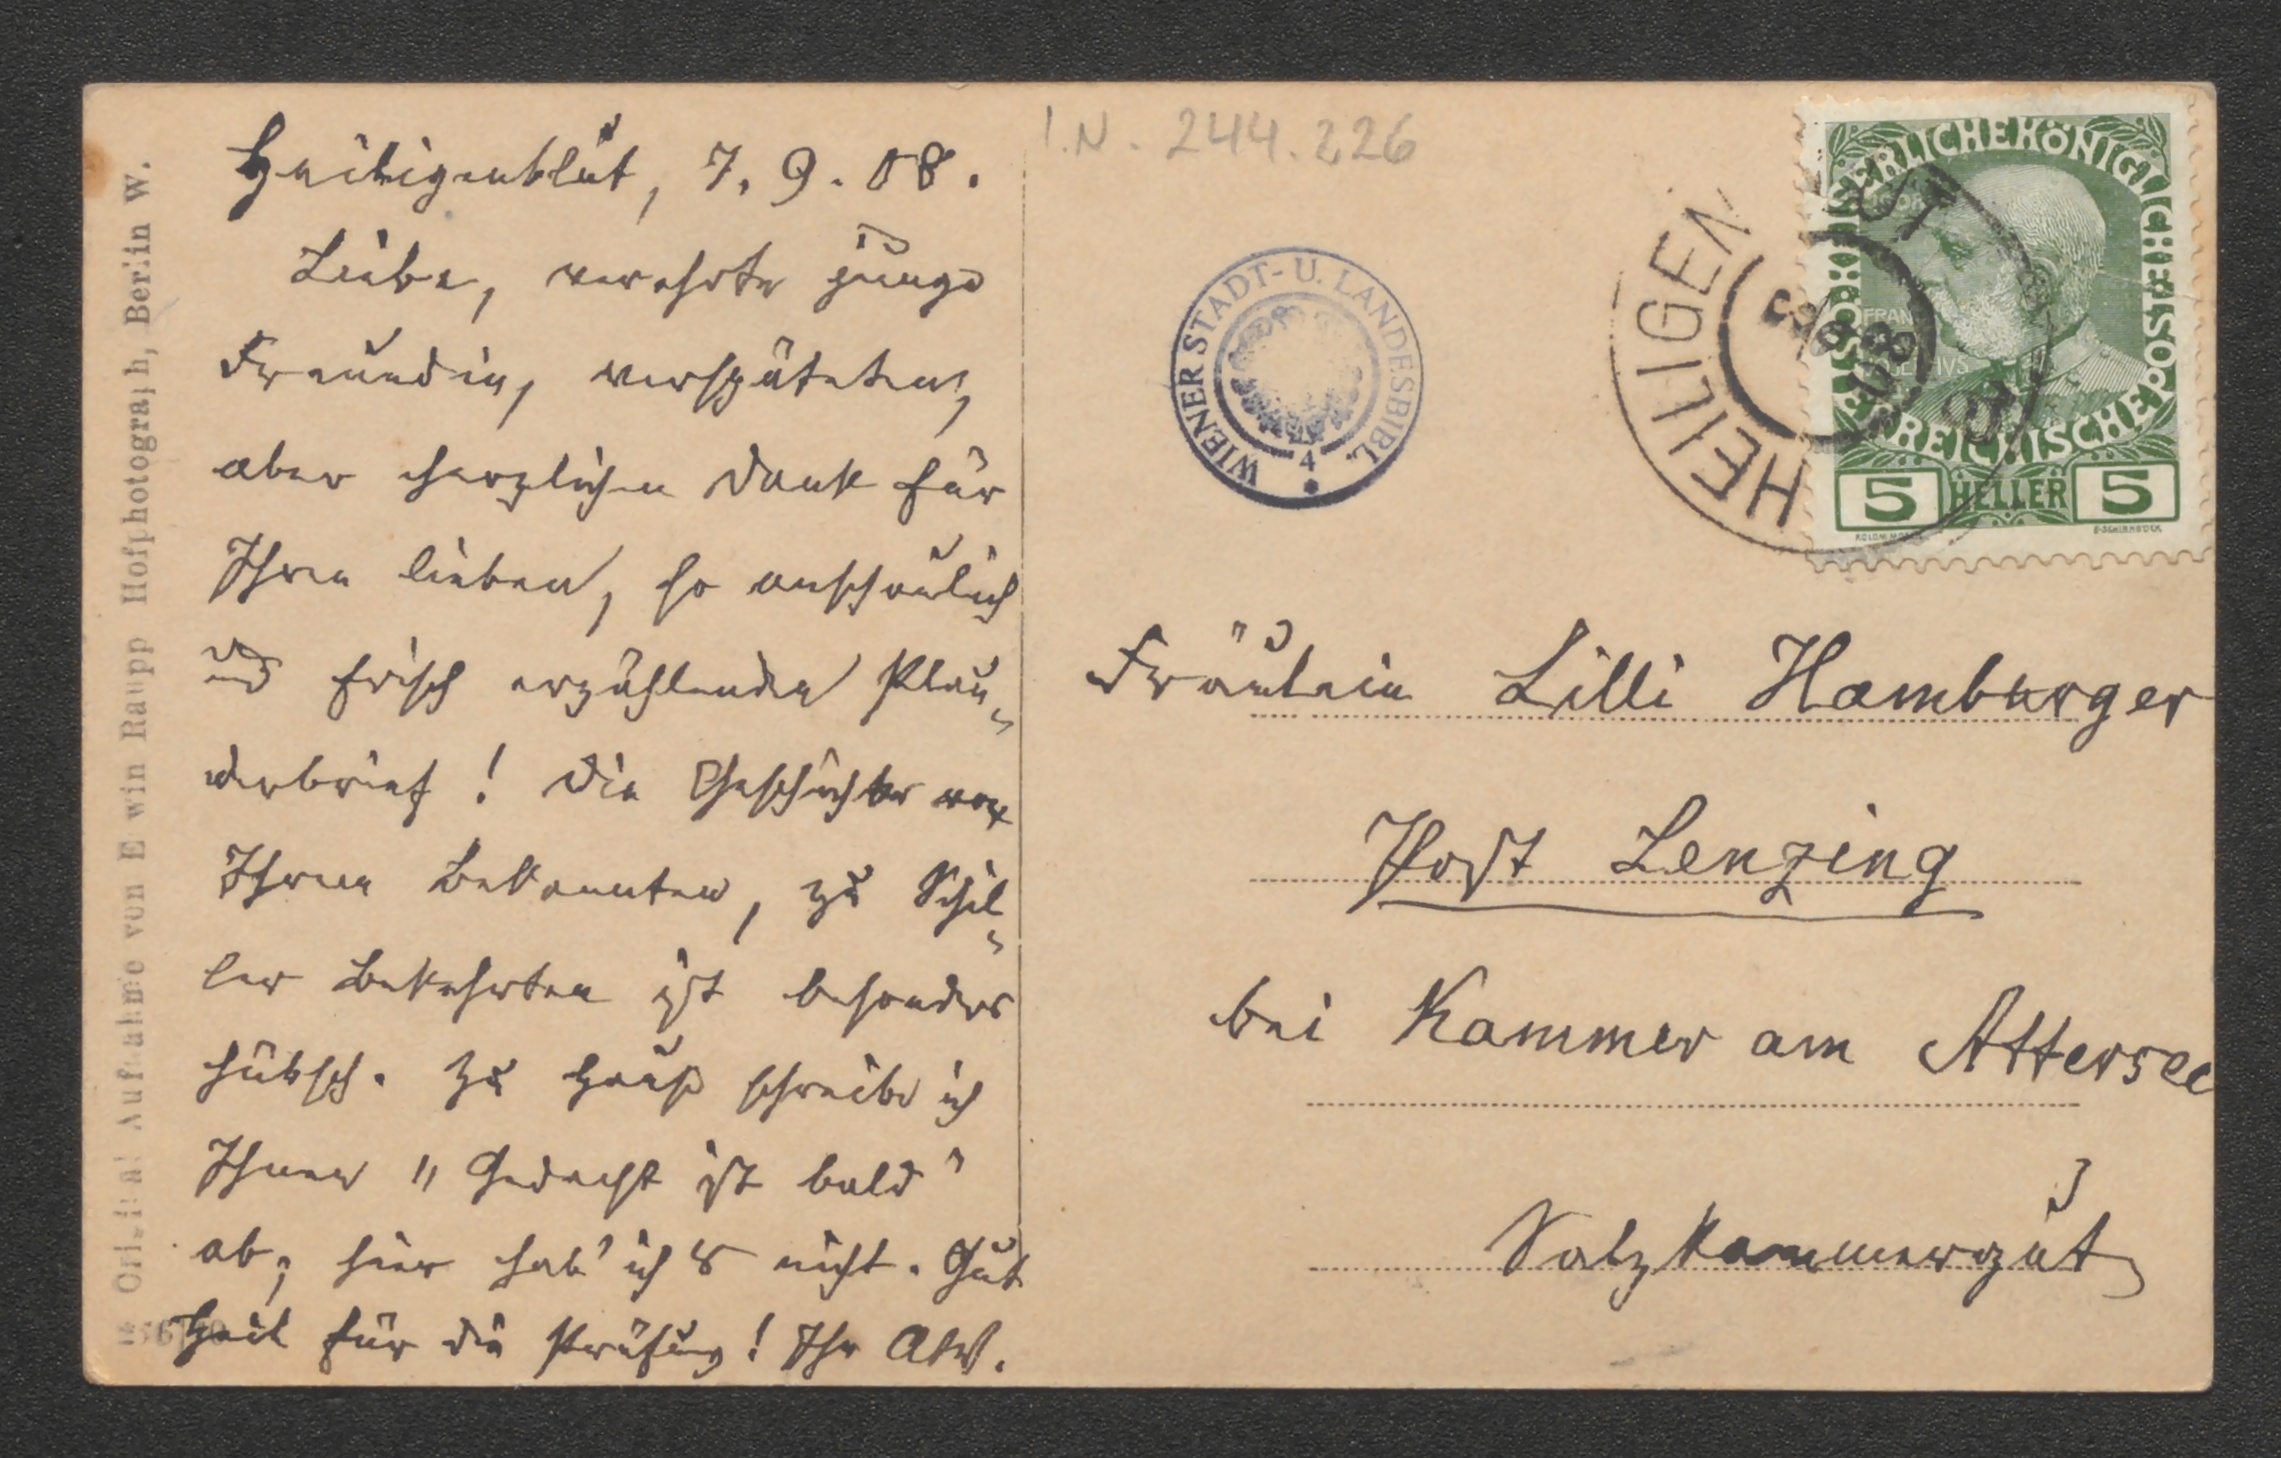 Heiligenblut, 7. 9. 08.
Liebe, verehrte junge
Freundin, verspäteten,
aber herzlichen Dank für
Ihren lieben, so anschaulich
und frisch erzählenden Plau-
derbrief! Die Geschichte von
Ihrem Bekannten, zu Schil-
ler Bekehrten ist besonders
hübsch. Zu Hause schreibe ich
Ihnen "Gedacht ist bald"
ab; hier hab' ich's nicht. Gut
Heil für die Prüfung! Ihr
Original Aufnahme von Erwin Raupp Hofphotograph, Berlin W.
I.N. 244.226
WIENER STADT- U. LANDESBIBL.
4
HEILIGENBLUT
KAISERLICHE KÖNIGLICHE ÖSTERREICHISCHE POST
5 HELLER 5
Fräulein Lilli Hamburger
Post Lenzing
bei Kammer am Attersee
Salzkammergut